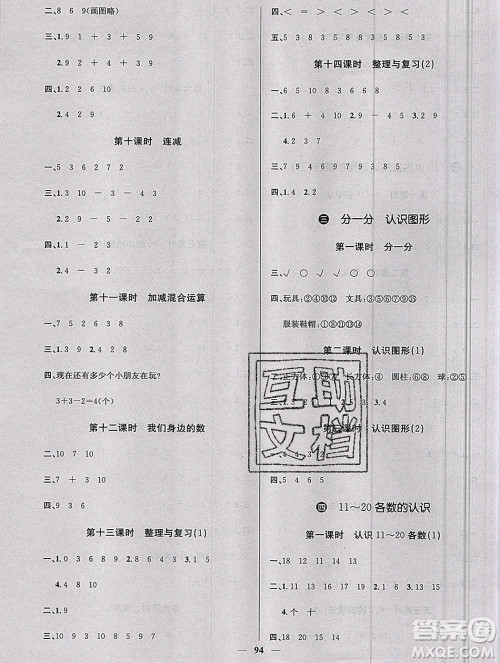 二、8 6 9(画图略)
三、1. 9 + 1 + 3 + 3
2. 9 + 2 + 2 + 9
四、1. 2 6 10
2. 9 10
第十课时 连减
一、5 3 6 2 7 2
三、1. 3 10 - 3 - 4
2. 9 - 4 - 2 3
四、1. - - 2
2. 4 2 2 2
第十一课时 加减混合运算
一、7 6 8 9 7 9
三、1. 10 2. 1 3 9 2. 4 8 9
四、现在还有多少个小朋友在玩?
3+3-2=4(个)
第十二课时 我们身边的数
一、10 7 10
三、4 0 9 7
四、9 3 6
第十三课时 整理与复习(1)
一、1. 0 9 10 2. 8 6 4 3. 1 5
4. 5 1
三、9 3 3 9 9 3
四、> < = < = >
四、< = > < < <
五、8 3 5 8 3 5 8 5 3
第十四课时 整理与复习(2)
一、6 10 8 3 6 6 8
三、1. 3 1 2. 9 2 3. 9 1
4. 2
三、7 9 4 6 9 7 9 9 10
四、1. 4 2. 2
三 分一分 认识图形
第一课时 分一分
三、√ ○ √ ○ √ ○
四、玩具:②④⑩⑪ 文具:③⑤⑦⑫
服装鞋帽:
第二课时 认识图形(1)
长方体:④ 圆柱:⑥⑧ 球:②⑤
认识图形(2)
四、5 4 6 5
四 11～20 各数的认识
第一课时 认识 11～20 各数(1)
一、18 12 14 13
三、16 17 19 11 15
四、1. 个 十
四、16 15 14 20
94
互助文档
答案圈
MXQE.COM